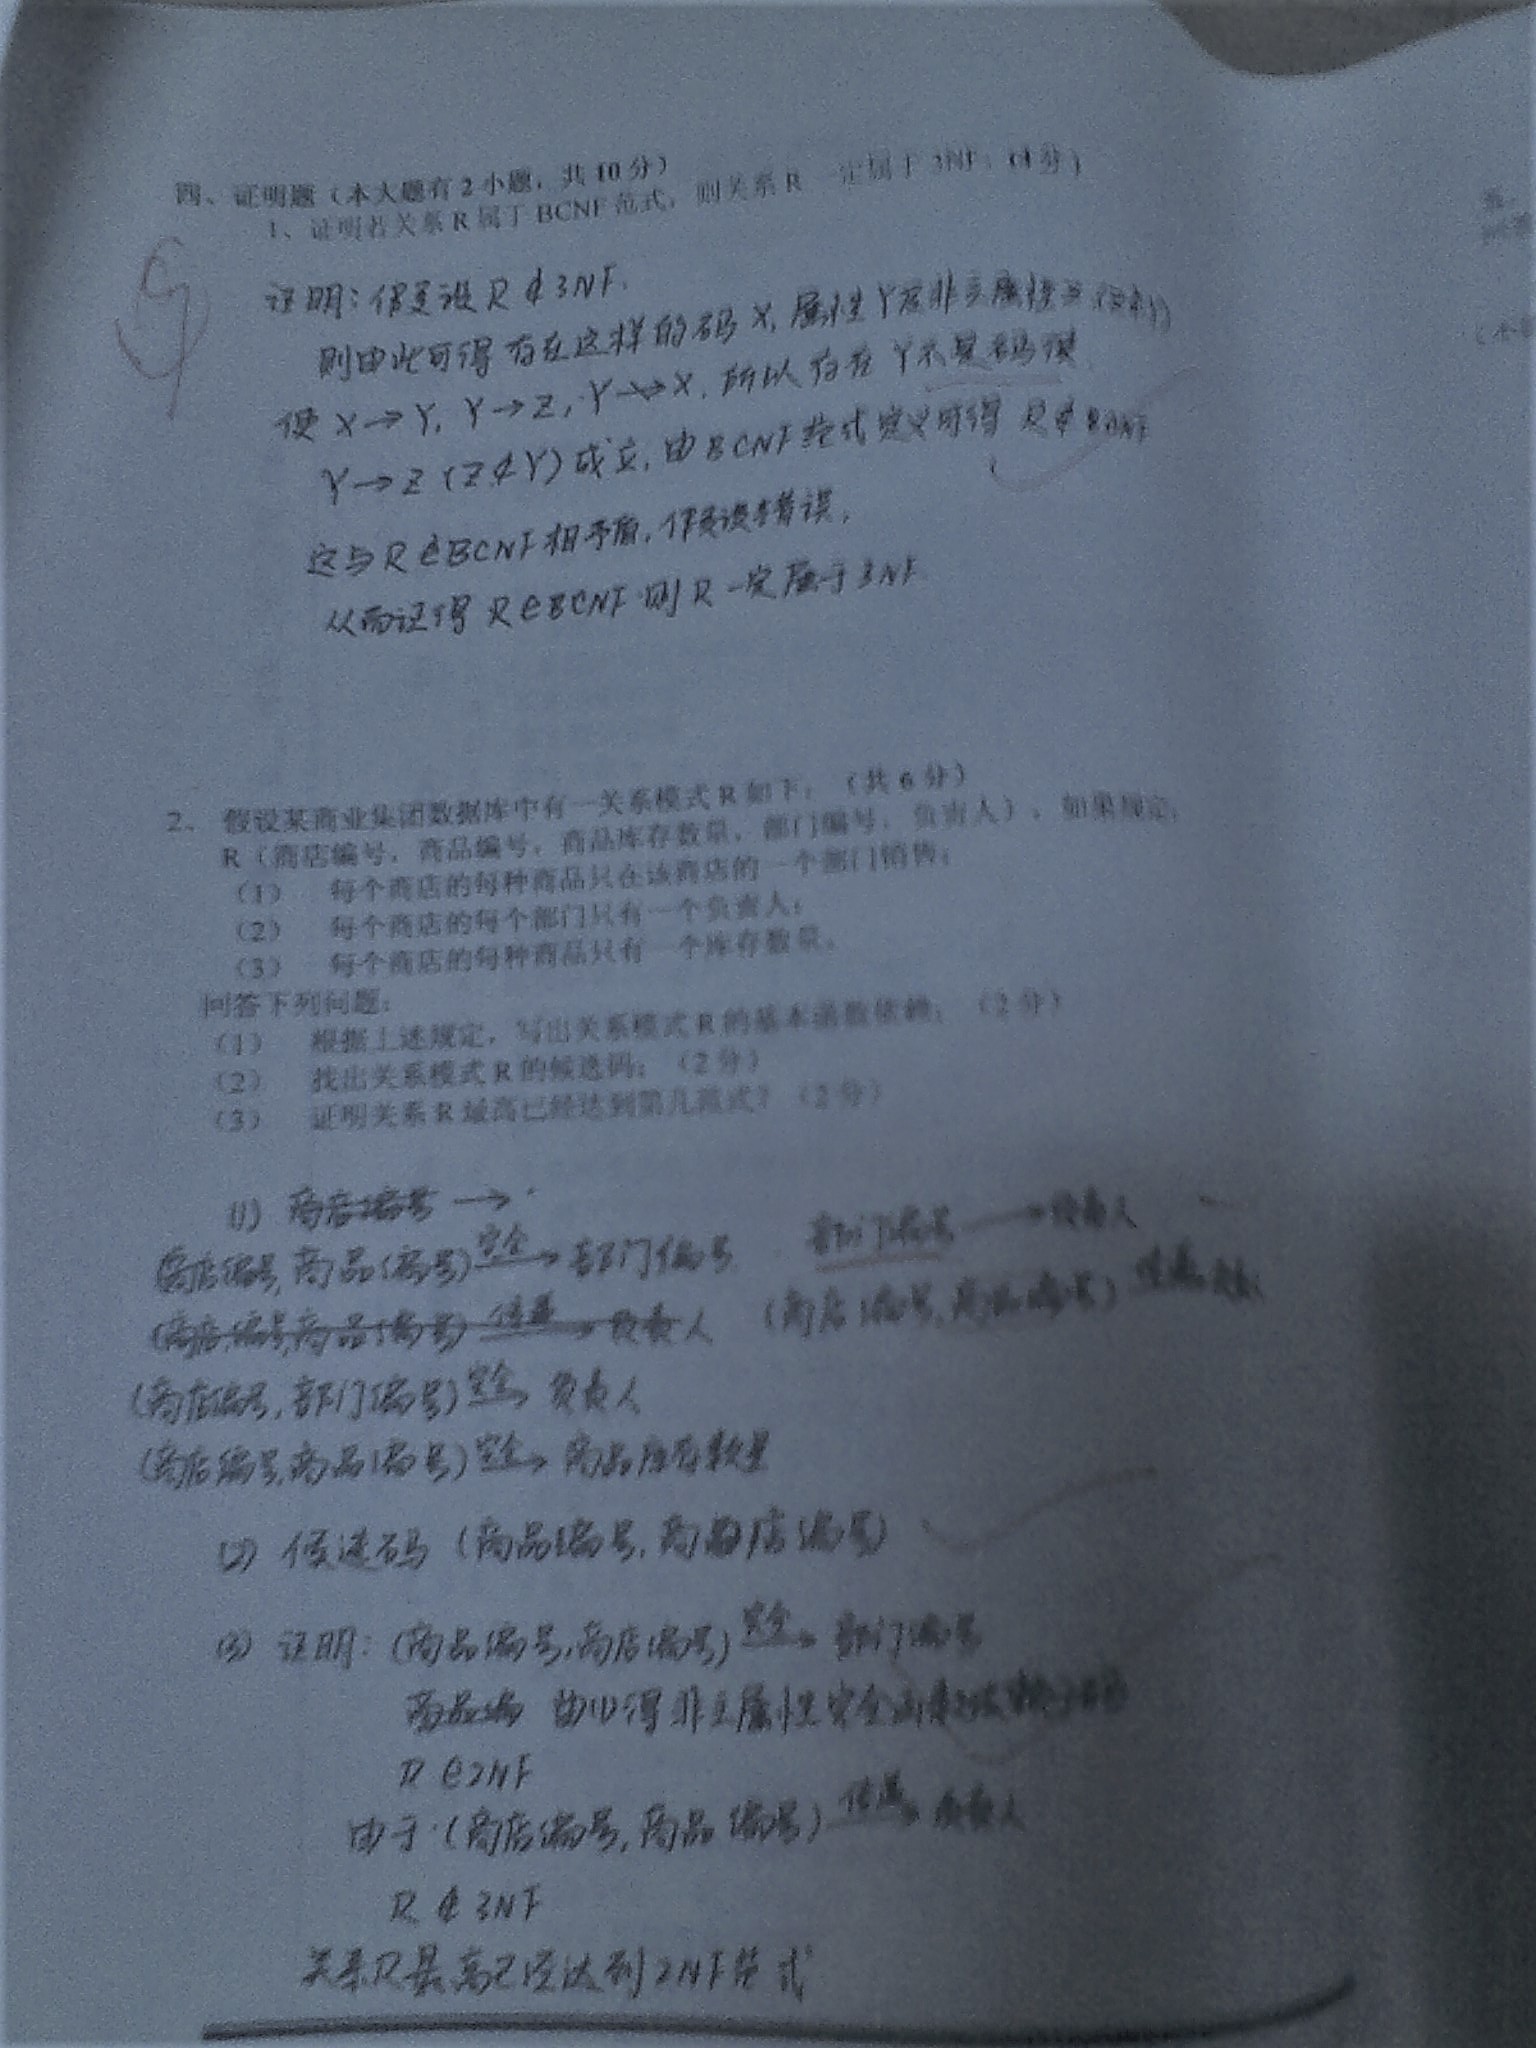 四、证明题（本大题有2小题，共10分）
1、证明若关系R属于BCNF范式，则关系R一定属于3NF；（4分）
9
证明：假设R∉3NF.
则由此可得存在这样的码X，属性Y及非主属性Z
使X→Y，Y→Z，Y↛X，所以存在Y不是码使
Y→Z（Z∉Y）成立，由BCNF范式定义可得 R∉BCNF
这与R∈BCNF相矛盾，假设错误，
从而证得R∈BCNF则R一定属于3NF
2、假设某商业集团数据库中有一关系模式R如下：（共6分）
R（商店编号，商品编号，商品库存数量，部门编号，负责人），如果规定：
（1） 每个商店的每种商品只在该商店的一个部门销售；
（2） 每个商店的每个部门只有一个负责人；
（3） 每个商店的每种商品只有一个库存数量。
回答下列问题：
（1） 根据上述规定，写出关系模式R的基本函数依赖；（2分）
（2） 找出关系模式R的候选码；（2分）
（3） 证明关系R最高已经达到第几范式？（2分）
(1) 商店编号 →
(商店编号,商品编号) 完全→ 部门编号 部门编号 → 负责人
(商店编号,商品编号) 传递→ 负责人 (商店编号,商品编号) 传递
(商店编号,部门编号) 完全→ 负责人
(商店编号,商品编号) 完全→ 商品库存数量
(2) 候选码 (商品编号,商店编号)
(3) 证明：(商品编号,商店编号) 完全→ 部门编号
商品编 由(1)得非主属性完全函数依赖于码
R∈2NF
由于(商店编号,商品编号) 传递→ 负责人
R∉3NF
关系R最高已经达到2NF范式